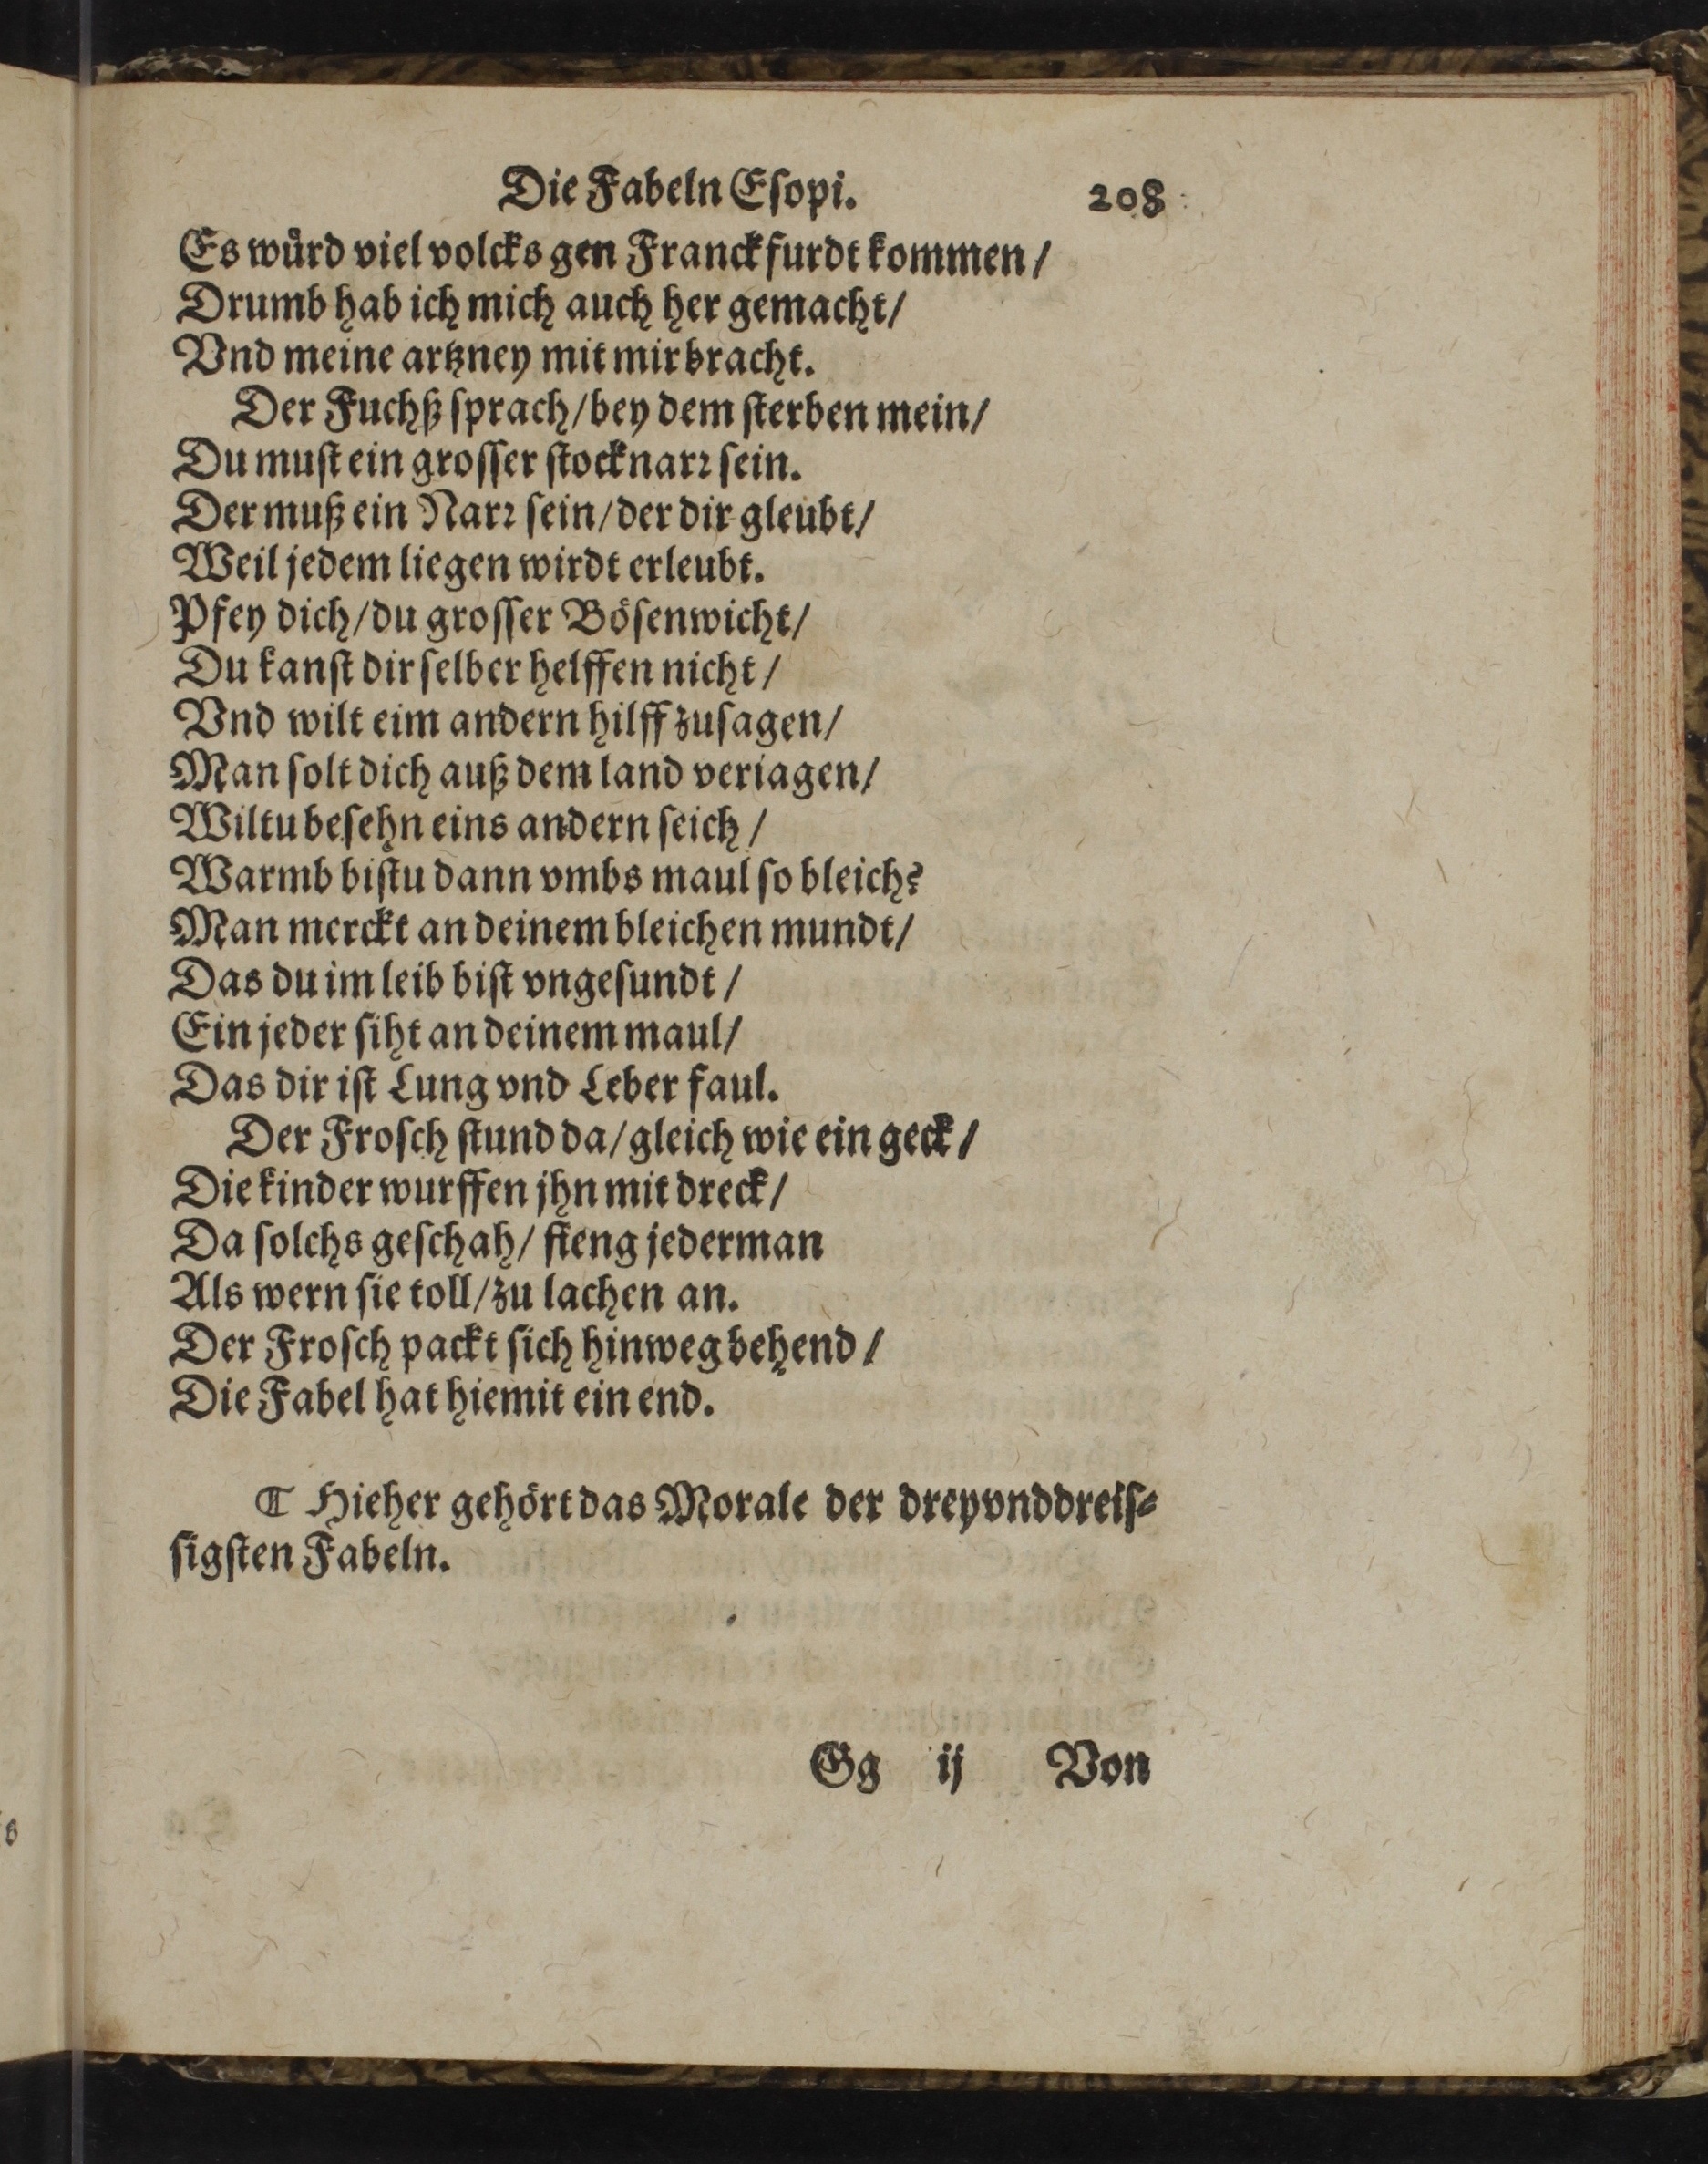 Die Fabeln Eſopi. 208
Es wuͤrd viel volcks gen Franckfurdt kommen /
Drumb hab ich mich auch her gemacht /
Vnd meine artzney mit mir bracht.
Der Fuchß ſprach / bey dem ſterben mein /
Du muſt ein groſſer ſtocknarꝛ ſein.
Der muß ein Narꝛ ſein / der dir gleubt /
Weil jedem liegen wirdt erleubt.
Pfey dich / du groſſer Boͤſenwicht /
Du kanſt dir ſelber helffen nicht /
Vnd wilt eim andern hilff zuſagen /
Man ſolt dich auß dem land veriagen /
Wiltu beſehn eins andern ſeich /
Warmb biſtu dann vmbs maul ſo bleich?
Man merckt an deinem bleichen mundt /
Das du im leib biſt vngeſundt /
Ein jeder ſiht an deinem maul /
Das dir iſt Lung vnd Leber faul.
Der Froſch ſtund da / gleich wie ein geck /
Die kinder wurffen jhn mit dreck /
Da ſolchs geſchah / fieng jederman
Als wern ſie toll / zu lachen an.
Der Froſch packt ſich hinweg behend /
Die Fabel hat hiemit ein end.
¶ Hieher gehoͤrt das Morale der dreyvnddreiſ⸗
ſigſten Fabeln.
Gg ij Von